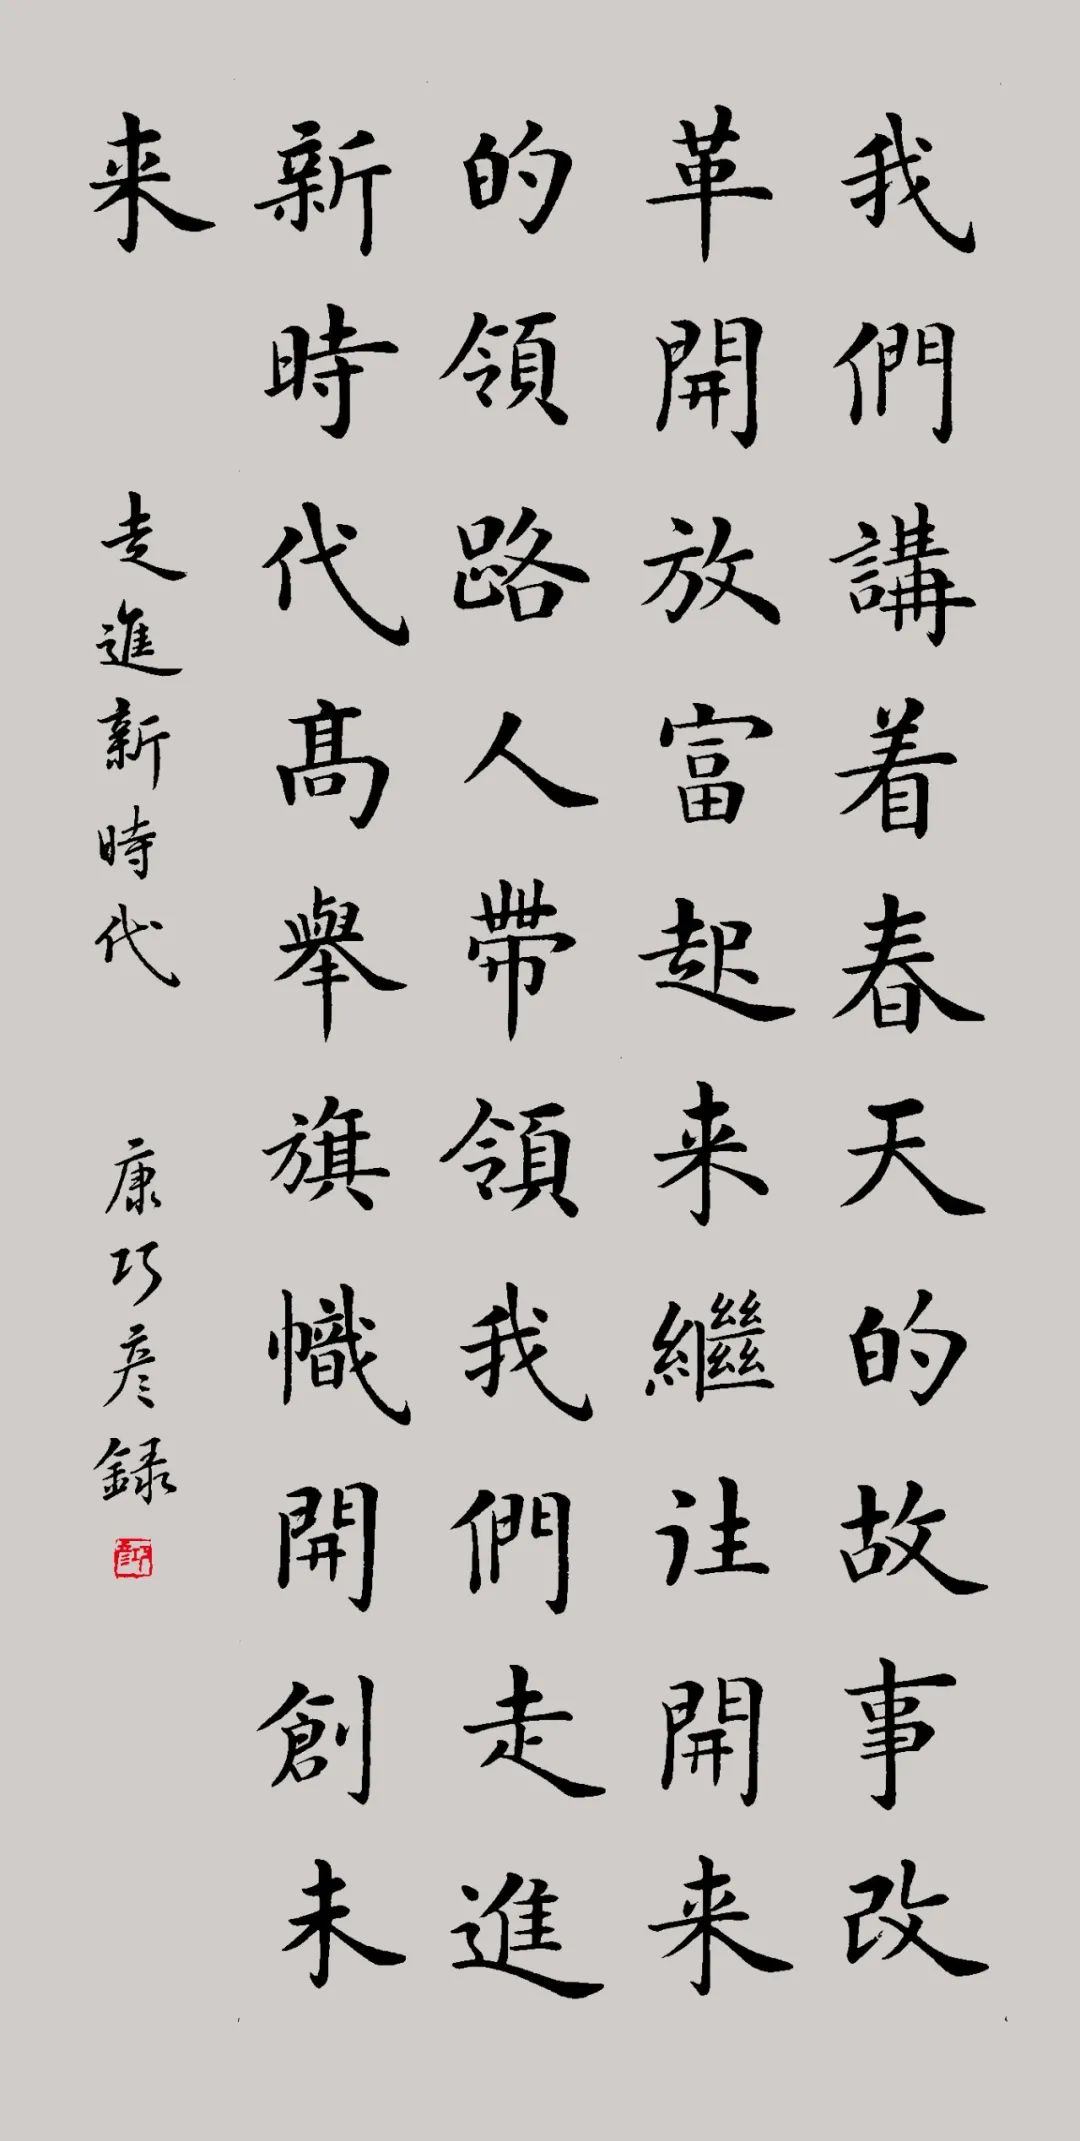 我們講着春天的故事改
革開放富起来繼往開来
的領路人帶領我們走進
新時代高舉旗幟開創未
来
走進新時代
康巧彦錄